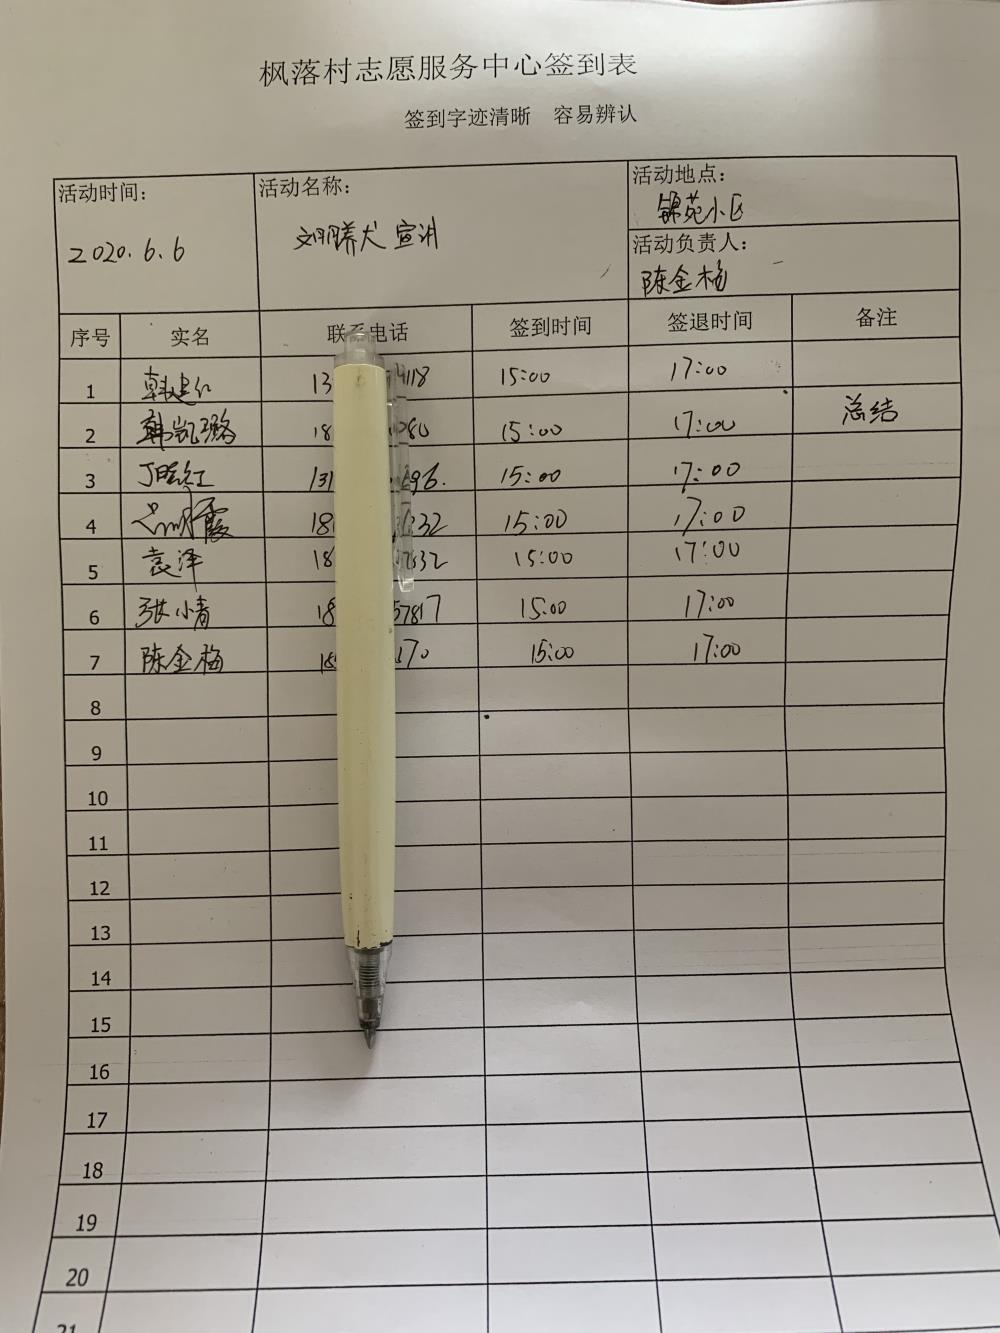 枫落村志愿服务中心签到表
签到字迹清晰 容易辨认
活动时间: 活动名称: 活动地点:
2020.6.6 文明养犬 宣讲 锦苑小区
活动负责人:
陈金梅
序号 实名 联系电话 签到时间 签退时间 备注
1 韩建红 13 4118 15:00 17:00
2 韩凯璐 18 080 15:00 17:00 总结
3 131 696. 15:00 17:00
4 18 332 15:00 17:00
5 袁泽 18 7632 15:00 17:00
6 张小青 18 57817 15:00 17:00
7 陈金梅 18 170 15:00 17:00
8
9
10
11
12
13
14
15
16
17
18
19
20
21